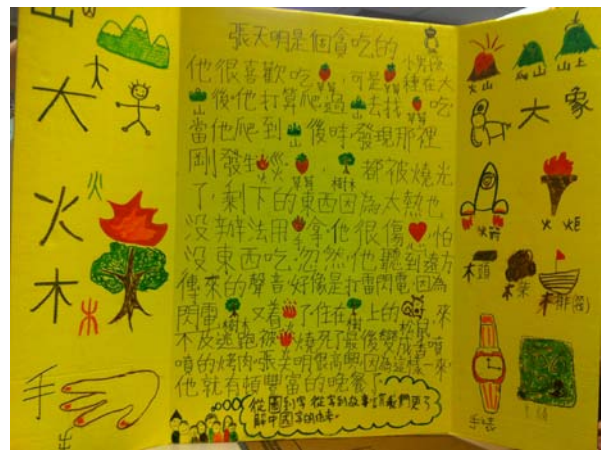 山
大
大
火
火
木
木
手
張天明是個貪吃的
小男孩
他很喜歡吃草莓,可是草莓種在大
山後,他打算爬過山去找草莓吃
當他爬到山後時發現那裡
剛發生火災,草莓,樹木都被燒光
了,剩下的東西因為太熱也
沒辦法用手拿,他很傷心,怕
沒東西吃,忽然他聽到遠方
傳來的聲音好像是打雷閃電,因為
閃電樹木又着火了住在樹上的松鼠,來
不及逃跑被火燒死了最後變成香噴
噴的烤肉,張天明很高興因為這樣一來,
他就有頓豐富的晚餐了
從圖到字從字到故事,讓我們更了
解中國字的由來。
火山 爬山 山上
大象
火箭 火炬
木頭 木柴 木排(筏)
手錶